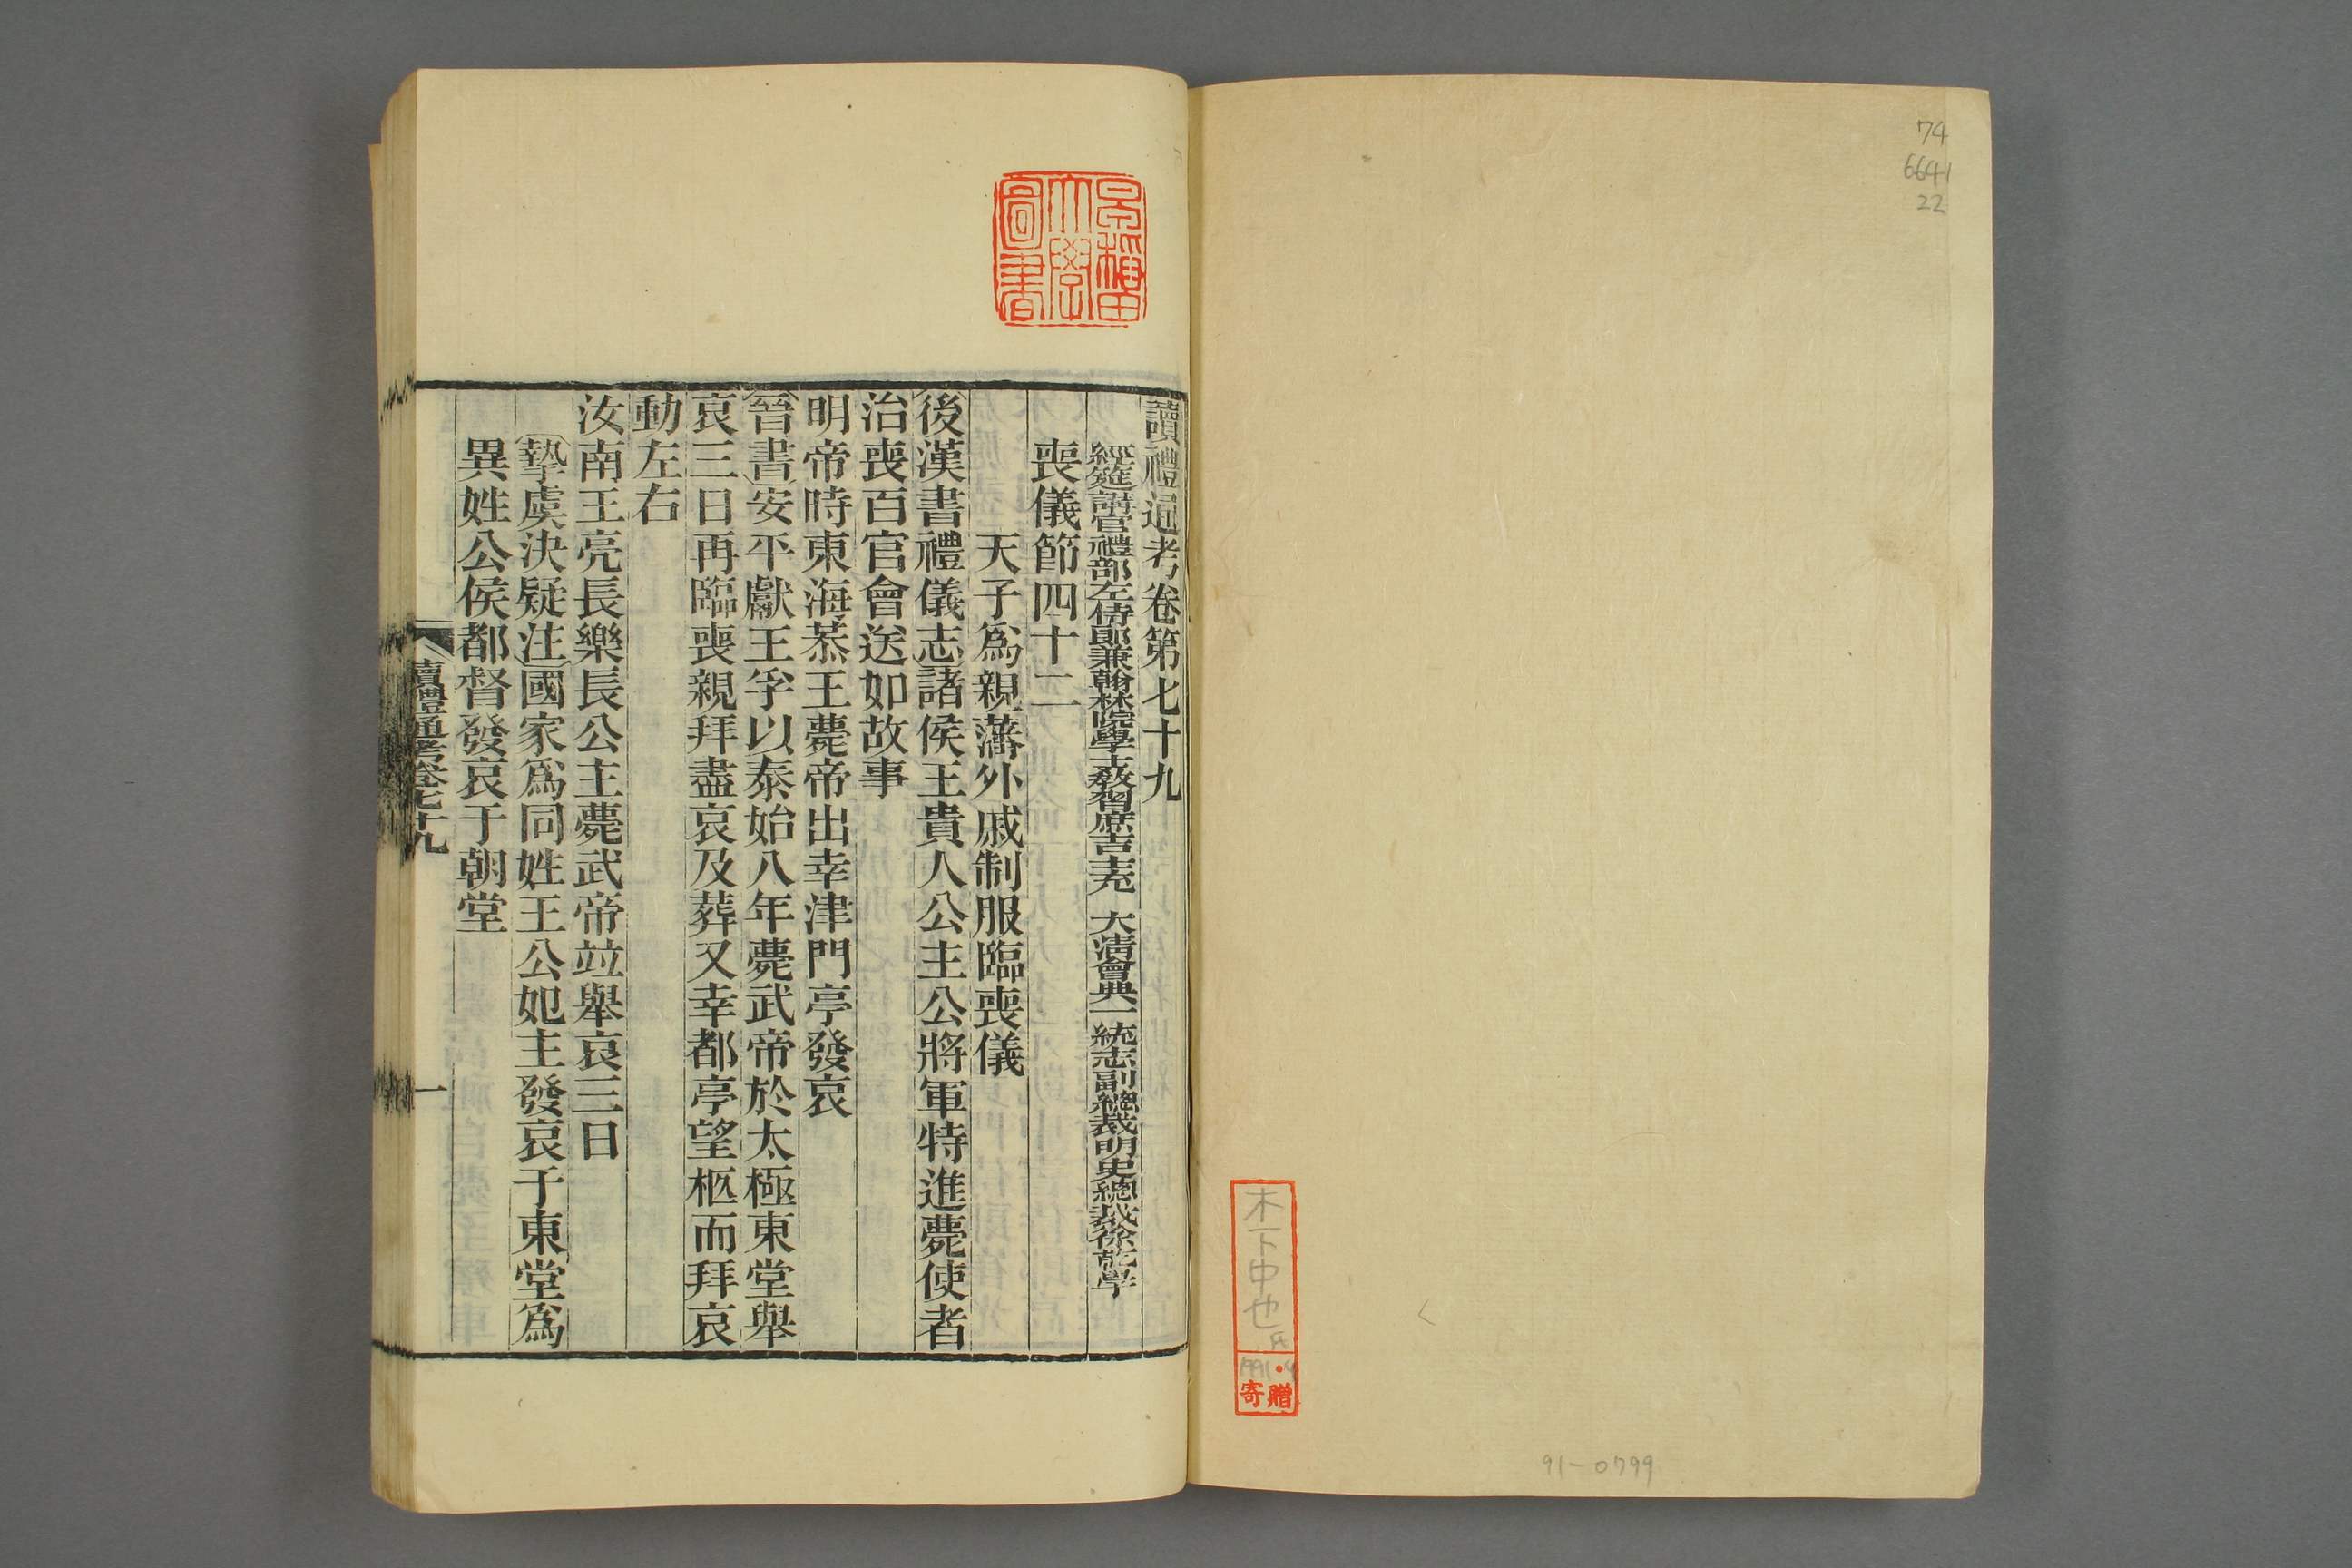 74
6641
22
木下中也氏
寄贈
91-0799
早稲田大學圖書
讀禮通考卷第七十九
經筵講官禮部左侍郎兼翰林院學士教習庶吉士充 大清會典一統志副總裁明史總裁徐乾學
喪儀節四十二
天子爲親藩外戚制服臨喪儀
後漢書禮儀志諸侯王貴人公主公將軍特進薨使者
治喪百官會送如故事
明帝時東海恭王薨帝出幸津門亭發哀
晉書安平獻王孚以泰始八年薨武帝於太極東堂舉
哀三日再臨喪親拜盡哀及葬又幸都亭望柩而拜哀
動左右
汝南王亮長樂長公主薨武帝竝舉哀三日
摯虞決疑注國家爲同姓王公妃主發哀于東堂爲
異姓公侯都督發哀于朝堂
讀禮通考卷七十九
一